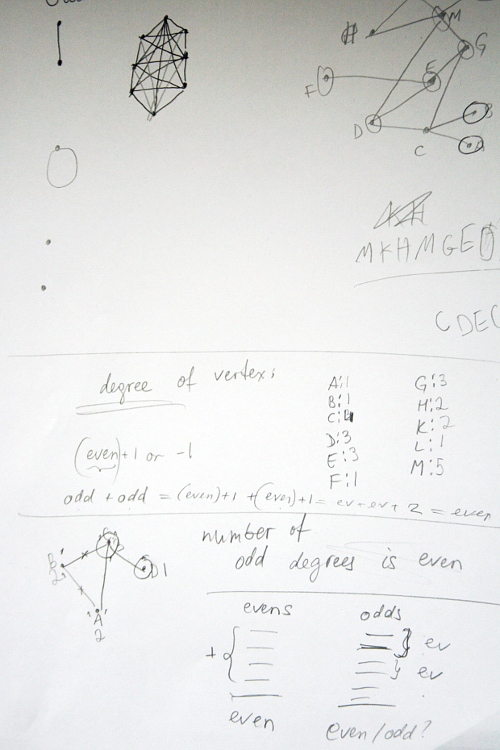 M
H
G
E
F
D
B
C
A
MKHMGED
CDEC
degree of vertex:
A:1 G:3
B:1 H:2
C:4 K:2
D:3 L:1
E:3 M:5
F:1
(even)+1 or -1
odd + odd = (even)+1 + (even)+1 = ev + ev + 2 = even
number of
odd degrees is even
D1
A
2
evens odds
+ ev
ev
even even/odd?